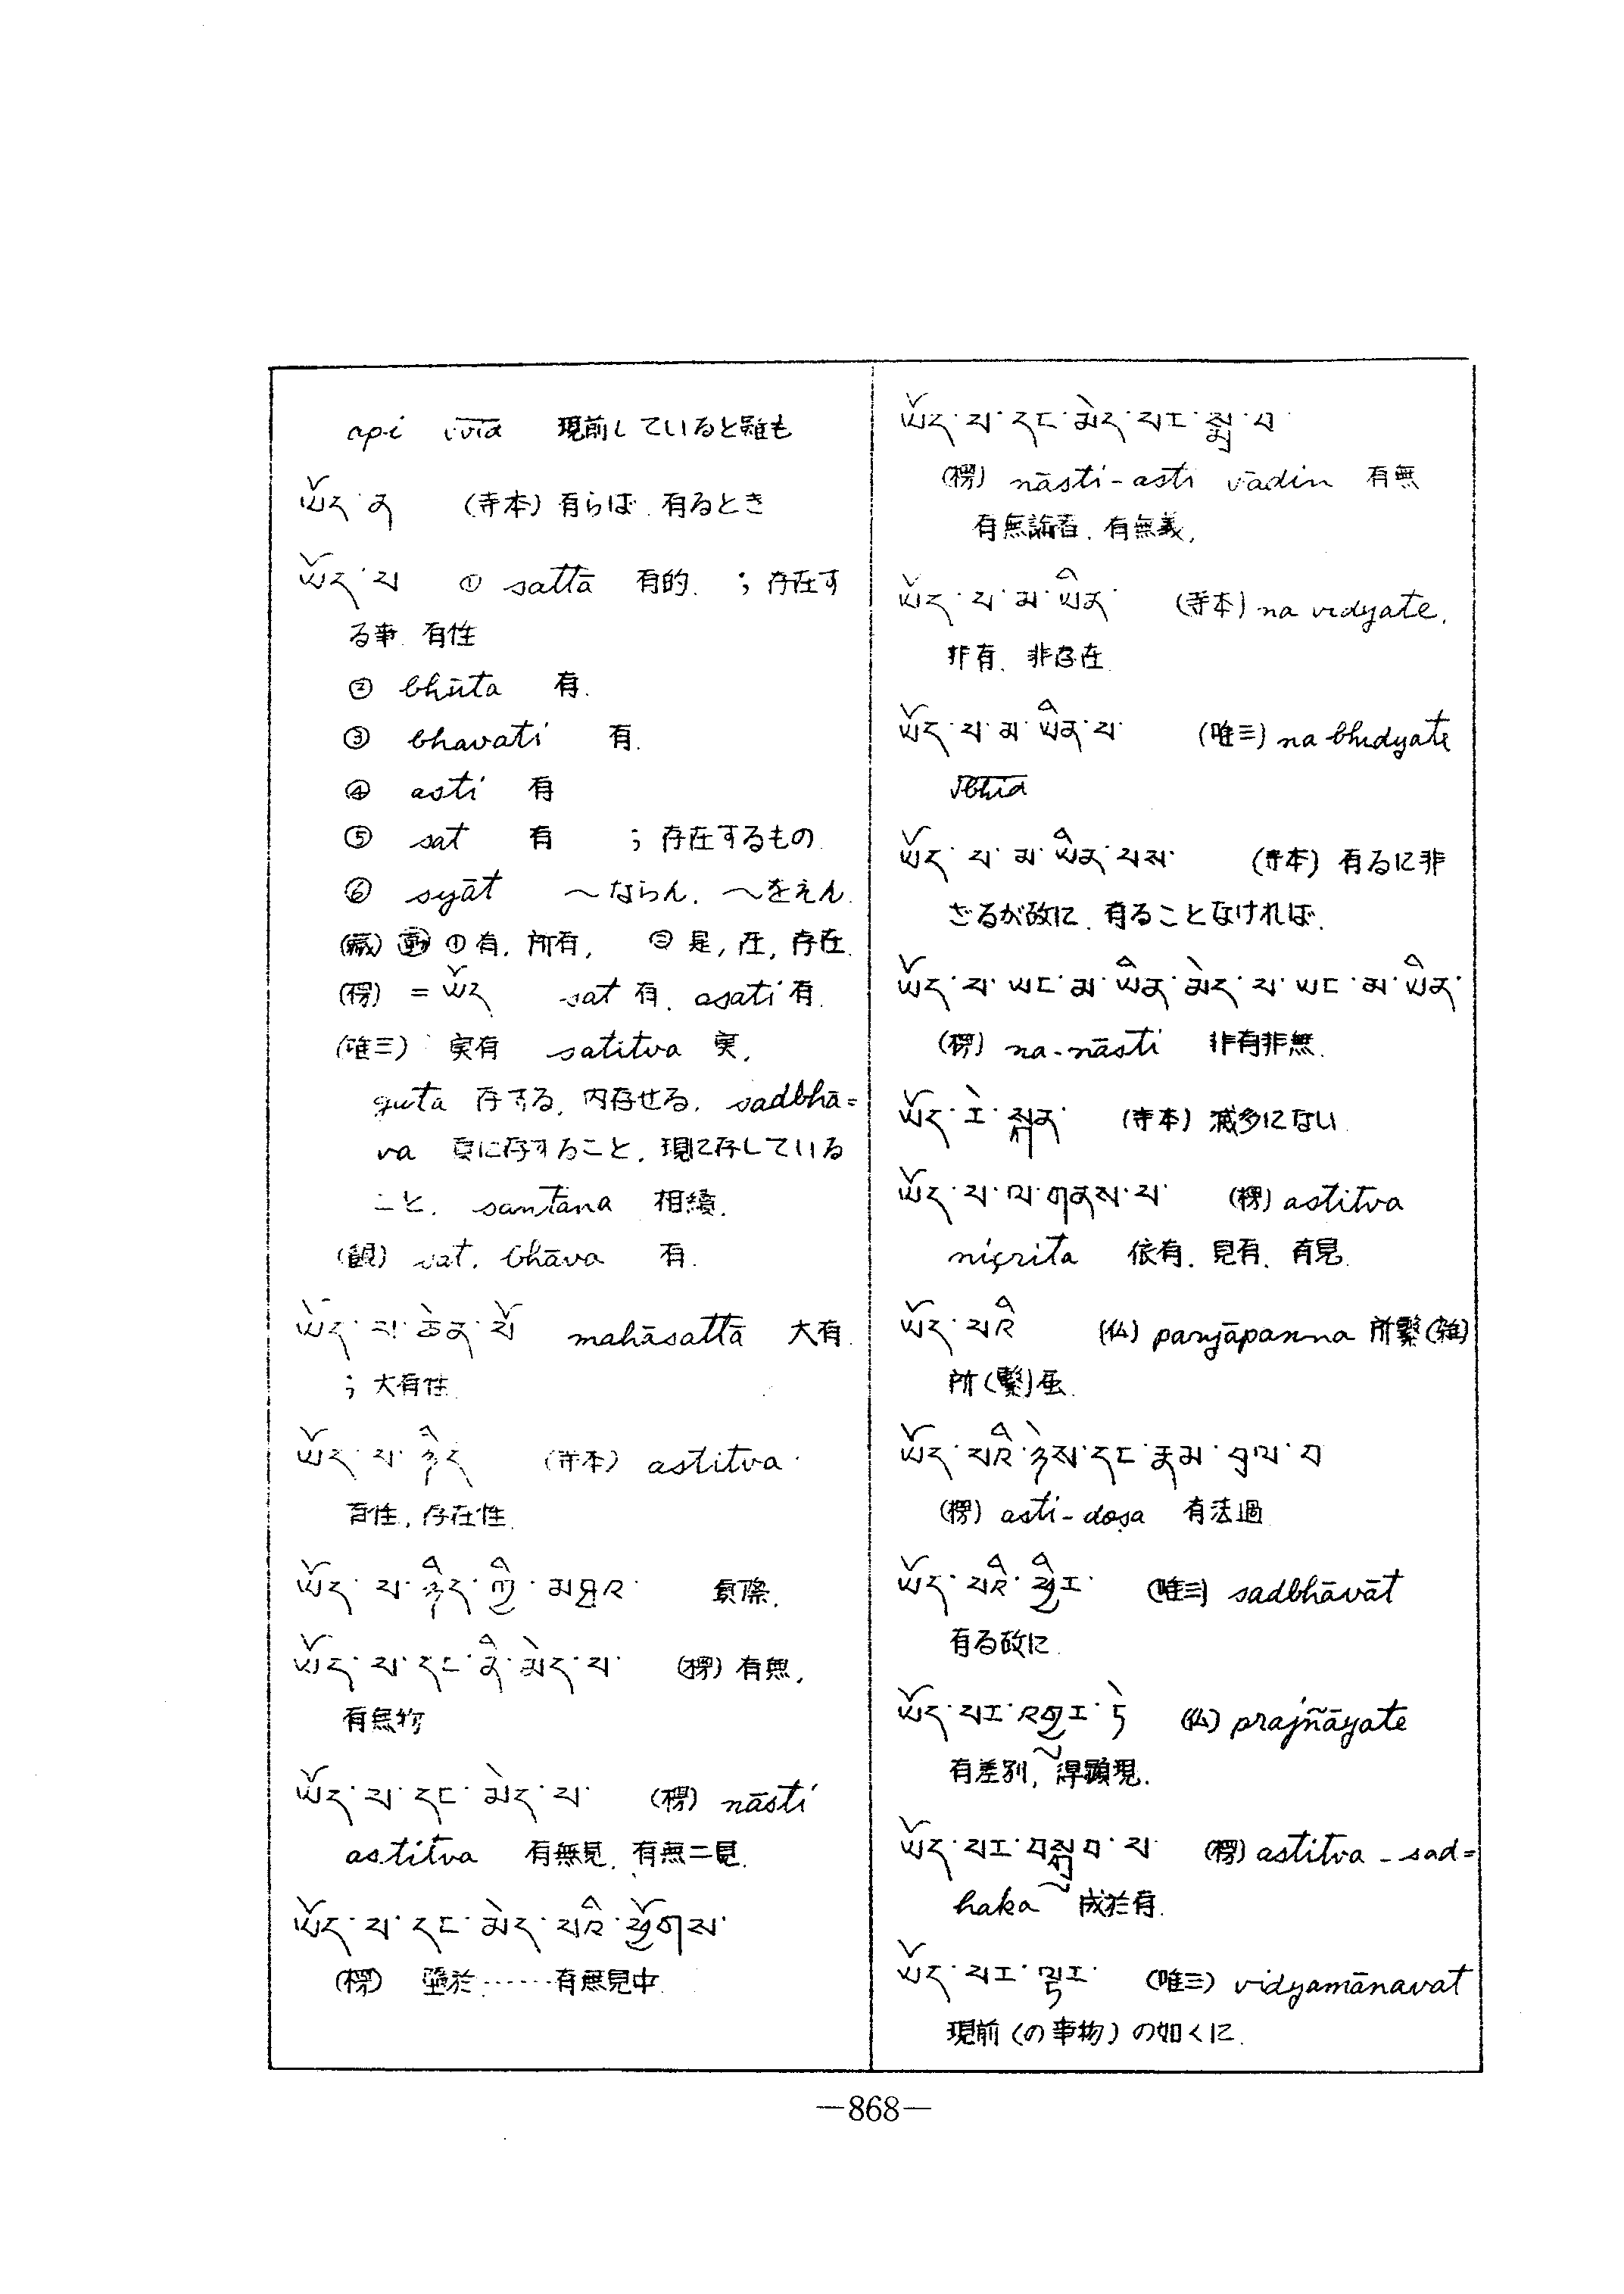 api √vid 現前していると雖も
ཡོད་ན (寺本) 有らば、有るとき
ཡོད་པ ① sattā 有的. ；存在す
る事、有性
② bhūta 有.
③ bhavati 有.
④ asti 有
⑤ sat 有 ；存在するもの
⑥ syāt ～ならん. ～をえん.
(蔵) 動 ①有, 所有, ② 是, 在, 存在.
(楞) = ཡོད sat 有. asati 有.
(唯三) 実有 satitva 実,
存する, 内存せる. sadbhā=
va 真に存すること, 現に存している
こと. santāna 相續.
(観) sat. bhāva 有.
ཡོད་པ་ཆེན་པོ mahāsattā 大有.
；大有性.
ཡོད་པ་ཉིད (寺本) astitva
有性, 存在性.
ཡོད་པ་ཉིད་ཀྱི་མཐར་ 真際.
ཡོད་པ་དང་ནི་མེད་པ་ (楞) 有無,
有無物
ཡོད་པ་དང་མེད་པ་ (楞) nāsti
astitva 有無見, 有無二見.
ཡོད་པ་དང་མེད་པའི་ཕྱོགས་
(楞) 墮於……有無見中.
ཡོད་པ་དང་མེད་པར་སྨྲ་བ་
(楞) nāsti-asti vādin 有無
有無論者, 有無義,
ཡོད་པ་མ་ཡིན་ (寺本) na vidyate.
非有、非存在.
ཡོད་པ་མ་ཡིན་པ་ (唯三) na bhidyate
√bhid
ཡོད་པ་མ་ཡིན་པས་ (寺本) 有るに非
ざるが故に、有ることなければ.
ཡོད་པ་ཡང་མ་ཡིན་མེད་པ་ཡང་མ་ཡིན་
(楞) na-nāsti 非有非無.
ཡོད་རེ་སྐན་ (寺本) 滅多にない
ཡོད་པ་ལ་གནས་པ་ (楞) astitva
niçrita 依有. 見有、有見.
ཡོད་པའི (仏) paryāpanna 所繋(雑)
所(繫)属.
ཡོད་པའི་ཉེས་དང་རྣམ་བྲལ་བ
(楞) asti-doṣa 有法過
ཡོད་པའི་ཕྱིར་ (唯三) sadbhāvāt
有る故に.
ཡོད་པར་འགྱུར་ཏེ (仏) prajñāyate
有差別, ～得顕現.
ཡོད་པར་བསྒྲུབ་པ་ (楞) astitva-sad=
haka ～成於有.
ཡོད་པར་ལྟར་ (唯三) vidyamānavat
現前 (の事物) の如くに.
—868—